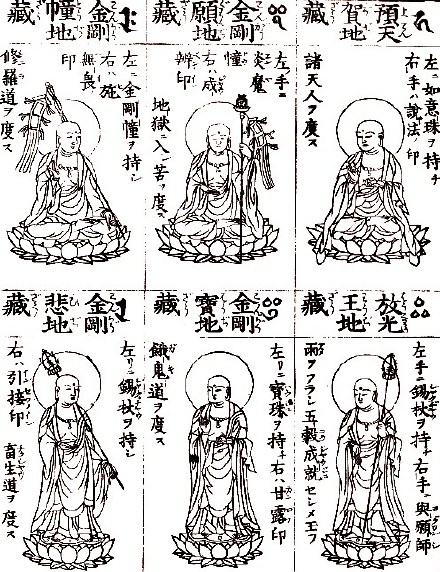 預天
賀地
藏
左ニ如意珠ヲ持チ
右手ハ說法ノ印
諸天人ヲ度ス
金剛
願地
藏
左ノ手ニ
炎魔
幢
右ハ成
辨印
地獄ニ入テ苦ヲ度ス
金剛
幢地
藏
左ニ金剛幢ヲ持シ
右ハ施
無畏
印
修羅道ヲ度ス
放光
王地
藏
左手ニ錫杖ヲ持チ右手ニ與願印
雨ヲフラシ五穀成就セシメ玉フ
金剛
寶地
藏
左リニ寶珠ヲ持チ右ハ甘露印
餓鬼道ヲ度ス
金剛
悲地
藏
左リニ錫杖ヲ持シ
右ハ引接印
畜生道ヲ度ス